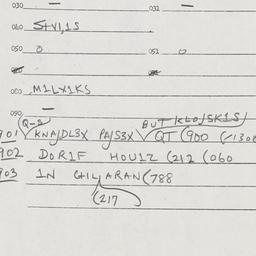 030 — 031 —
040 STVI,1S
050 0 051 0
080 M1LX1KS
090 —
(Q-S) BUT KLO/SK1S/
901 KNA/DL3X PA/S3X QT (900
902 DOR1F HOU1Z (212 (060
903 1N GILARAN (788
(217